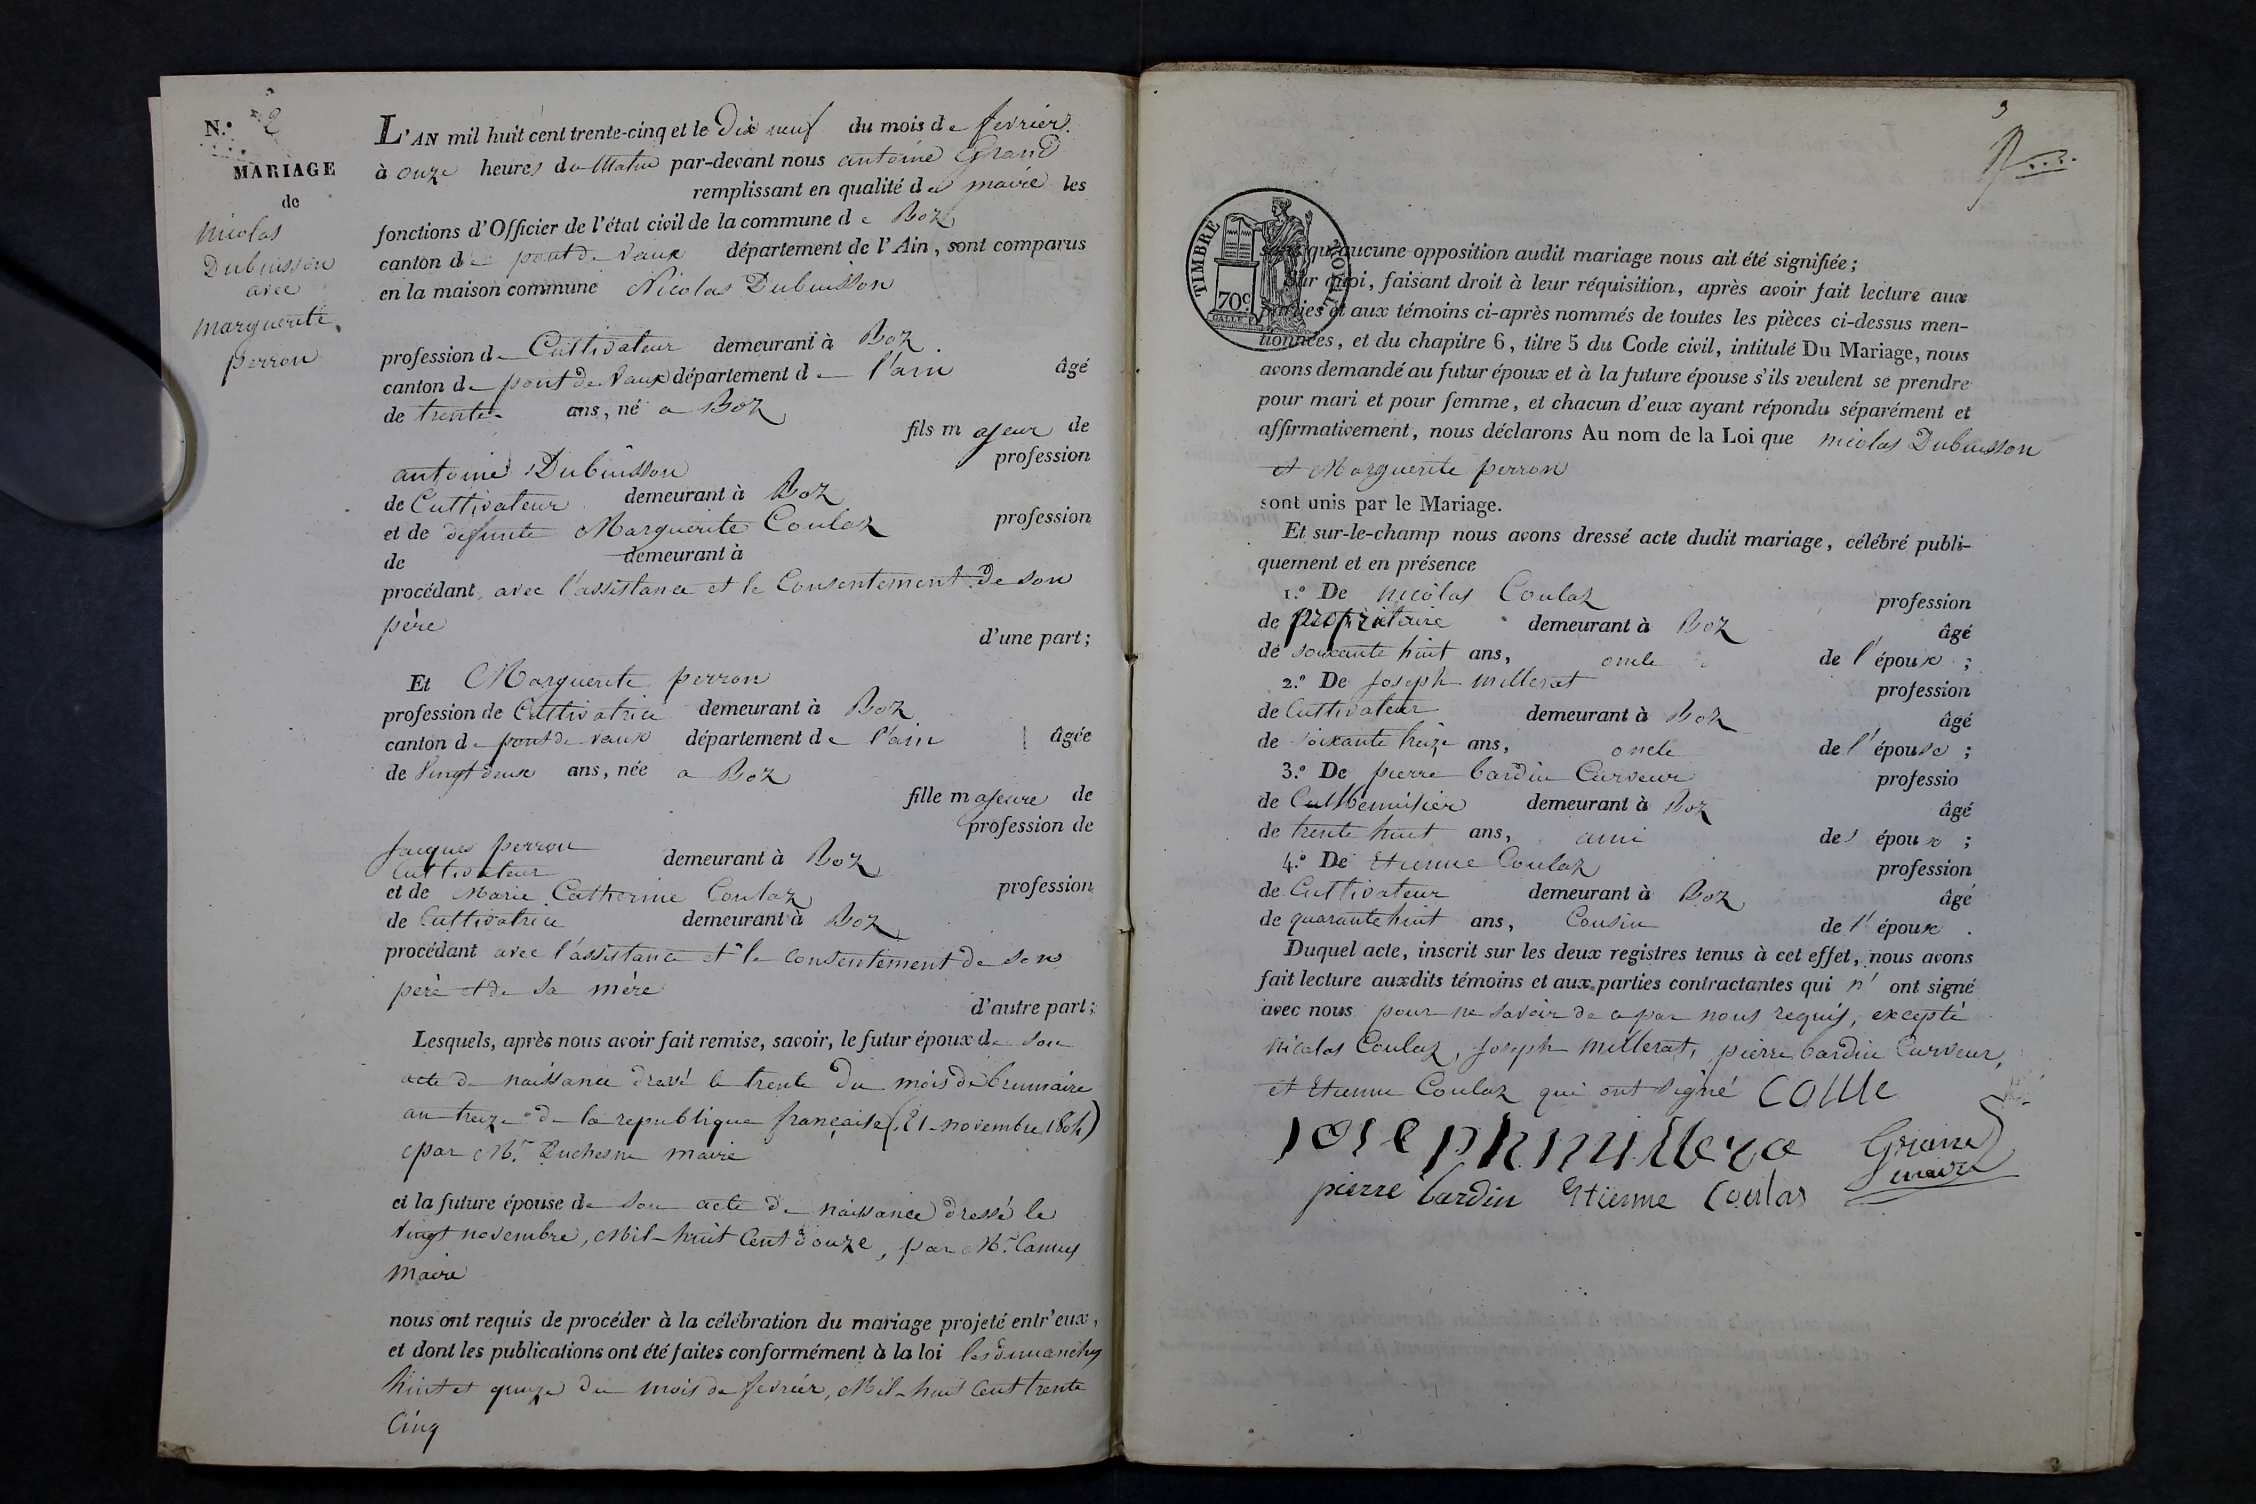 N.° 2
MARIAGE
de
Nicolas
Dubuisson
avec
Marguerite
perron
L'AN mil huit cent trente-cinq et le Dix neuf du mois de fevrier
à onze heures du Matin par-devant nous antoine Grand
remplissant en qualité de maire les
fonctions d'Officier de l'état civil de la commune de Boz
canton de pont de Vaux département de l'Ain, sont comparus
en la maison commune Nicolas Dubuisson
profession de Cultivateur demeurant à Boz
canton de pont de Vaux département de l'ain âgé
de trente ans, né a Boz
fils majeur de
antoine Dubuisson profession
de Cultivateur demeurant à Boz
et de defunte Marguerite Coulaz profession
de demeurant à
procédant avec l'assistance et le Consentement De son
père
d'une part;
Et Marguerite perron
profession de Cultivatrice demeurant à Boz
canton de pont de vaux département de l'ain âgée
de Vingt deux ans, née a Boz
fille majeure de
profession de
Jacques perron
Cultivateur demeurant à Boz
et de Marie Catherine Coulaz profession
de Cultivatrice demeurant à Boz
procédant avec l'assistance et le consentement de son
père et de sa mère
d'autre part;
Lesquels, après nous avoir fait remise, savoir, le futur époux de son
acte de naissance dressé le trente du mois de brumaire
an treize de la republique française (21 novembre 1804)
par Mr. Duchesne maire
et la future épouse de son acte de naissance dressé le
vingt novembre, Mil-huit Cent douze, par Mr. Camus
Maire
nous ont requis de procéder à la célébration du mariage projeté entr'eux,
et dont les publications ont été faites conformément à la loi les dimanches
huit et quinze du mois de fevrier, Mil-huit Cent trente
Cinq
3
TIMBRE ROYAL
70c
sans qu'aucune opposition audit mariage nous ait été signifiée;
Sur quoi, faisant droit à leur réquisition, après avoir fait lecture aux
parties et aux témoins ci-après nommés de toutes les pièces ci-dessus men-
tionnées, et du chapitre 6, titre 5 du Code civil, intitulé Du Mariage, nous
avons demandé au futur époux et à la future épouse s'ils veulent se prendre
pour mari et pour femme, et chacun d'eux ayant répondu séparément et
affirmativement, nous déclarons Au nom de la Loi que Nicolas Dubuisson
et Marguerite perron
sont unis par le Mariage.
Et sur-le-champ nous avons dressé acte dudit mariage, célébré publi-
quement et en présence
1.° De Nicolas Coulaz profession
de propriétaire demeurant à Boz âgé
de soixante huit ans, oncle de l'époux;
2.° De Joseph millerat profession
de Cultivateur demeurant à Boz âgé
de soixante treize ans, oncle de l'épouse;
3.° De pierre bardin Curveur professio
de demeurant à Boz âgé
de trente huit ans, ami des époux;
4.° De Etienne Coulaz profession
de Cultivateur demeurant à Boz âgé
de quarante huit ans, Cousin de l'époux.
Duquel acte, inscrit sur les deux registres tenus à cet effet, nous avons
fait lecture auxdits témoins et aux parties contractantes qui n'ont signé
avec nous pour ne savoir de ce par nous requis, excepté
Nicolas Coulaz, Joseph Millerat, pierre bardin Curveur,
et Etienne Coulaz qui ont signé
Grand
maire
pierre bardin Etienne Coulas